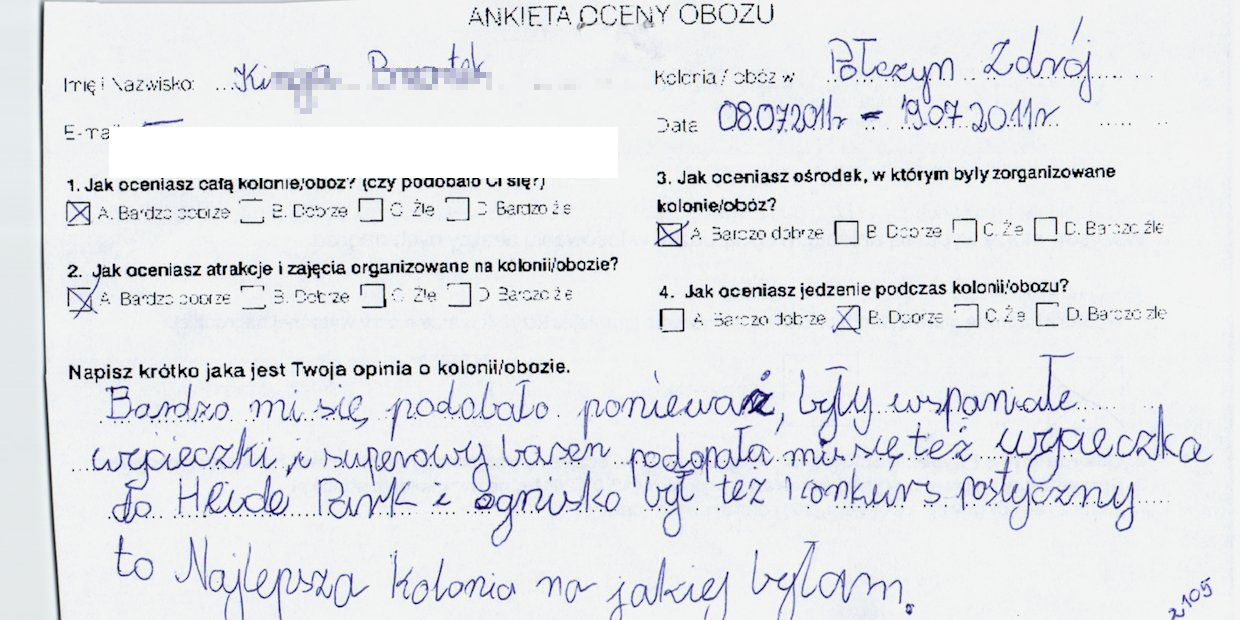 ANKIETA OCENY OBOZU
Imię i Nazwisko: Kinga
Kolonia / obóz w Połczyn Zdrój
E-ma
Data 08.07.2011r - 19.07.2011r
1. Jak oceniasz całą kolonię/obóz? (czy podobało Ci się?)
A. Bardzo dobrze B. Dobrze C. Źle D. Bardzo źle
2. Jak oceniasz atrakcje i zajęcia organizowane na kolonii/obozie?
A. Bardzo dobrze B. Dobrze C. Źle D. Bardzo źle
3. Jak oceniasz ośrodek, w którym były zorganizowane
kolonie/obóz?
A. Bardzo dobrze B. Dobrze C. Źle D. Bardzo źle
4. Jak oceniasz jedzenie podczas kolonii/obozu?
A. Bardzo dobrze B. Dobrze C. Źle D. Bardzo źle
Napisz krótko jaka jest Twoja opinia o kolonii/obozie.
Bardzo mi się podobało ponieważ, były wspaniałe
wycieczki, i superowy basen podopała mi się też wycieczka
do Heide Park i ognisko był też konkurs postyczny
to Najlepsza kolonia na jakiej byłam.
2105